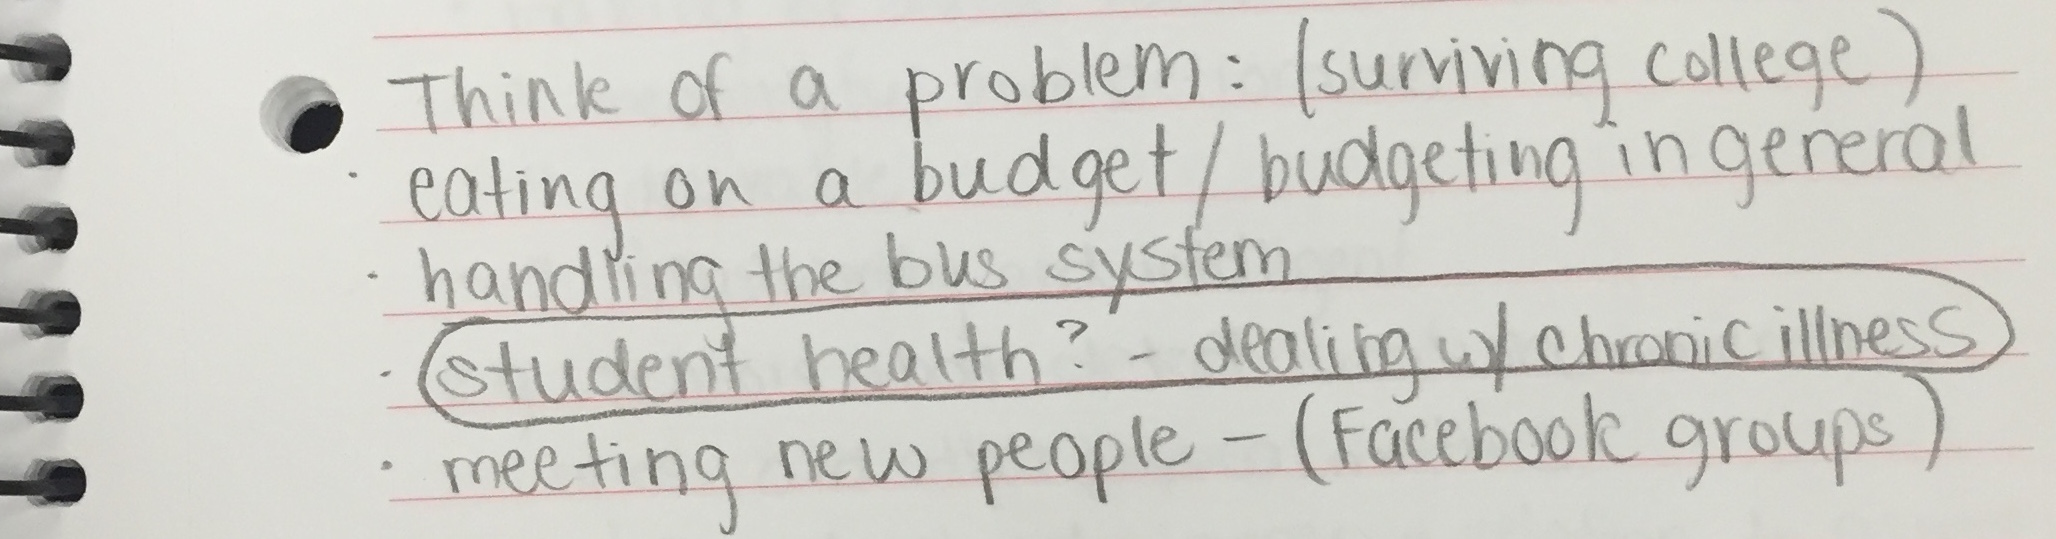 Think of a problem: (surviving college)
· eating on a budget / budgeting in general
· handling the bus system
· student health? - dealing w/ chronic illness
· meeting new people - (Facebook groups)